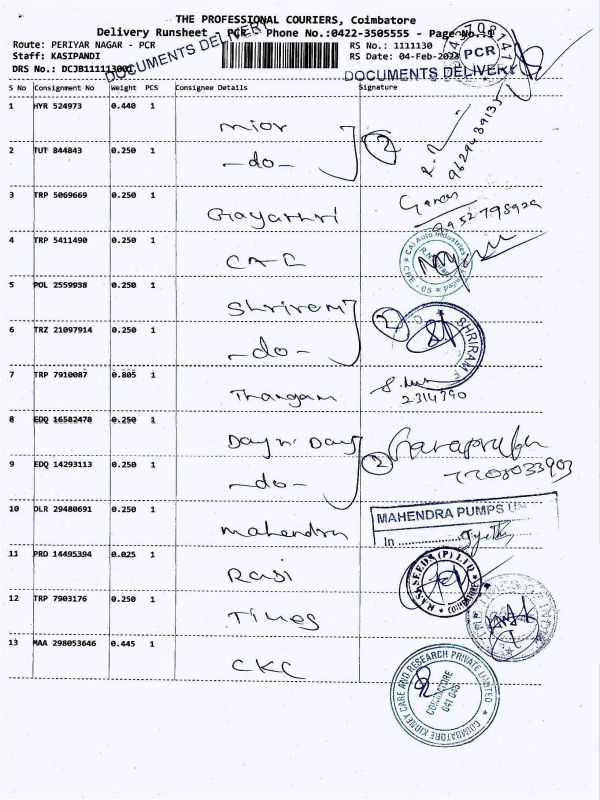 THE PROFESSIONAL COURIERS, Coimbatore
Delivery Runsheet - PCR - Phone No.:0422-3505555 - Page No.:1
Route: PERIYAR NAGAR - PCR RS No.: 1111130
Staff: KASIPANDI RS Date: 04-Feb-2023
DRS No.: DCJB111113001
DOCUMENTS DELIVERY
DOCUMENTS DELIVERY
PCR
S No Consignment No Weight PCS Consignee Details Signature
1 HYR 524973 0.440 1 mior
9629489135
2 TUT 844843 0.250 1 -do- 2
3 TRP 5069669 0.250 1 Gayathri
4 TRP 5411490 0.250 1 CAI
CAI Auto Industries
CBE - 05
5 POL 2559938 0.250 1 Shrirem
6 TRZ 21097914 0.250 1 -do- 2
SHRIRAM
7 TRP 7910087 0.805 1 Thangam
2314390
8 EDQ 16582478 0.250 1 Day n Day
9 EDQ 14293113 0.250 1 -do- 2
7708033903
10 DLR 29480691 0.250 1 mahendra
MAHENDRA PUMPS
In
11 PRO 14495394 0.025 1 Rasi
RASI SEEDS (P) LTD
COIMBATORE
12 TRP 7903176 0.250 1 Times
13 MAA 298053646 0.445 1 CKC
COIMBATORE KIDNEY CARE AND RESEARCH PRIVATE LIMITED
COIMBATORE
641 045